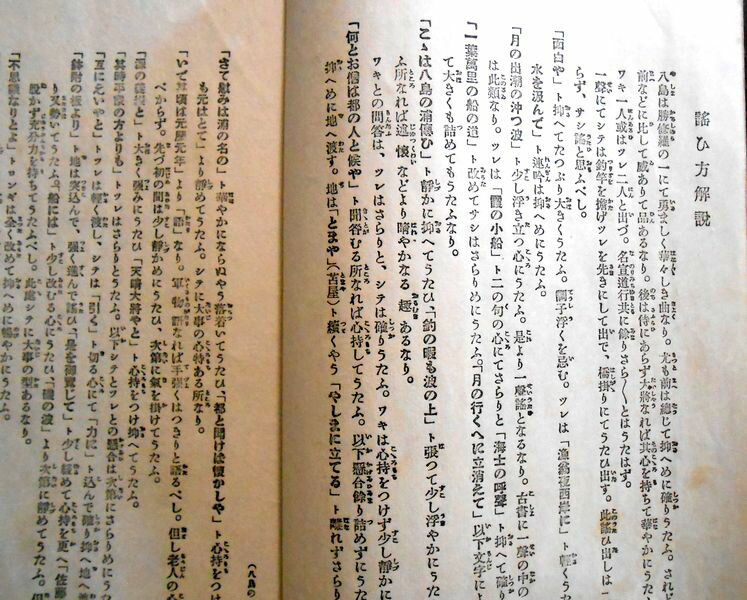 謠ひ方解説
八島は勝修羅の一にて勇ましく華々しき曲なり。尤も前は總じて抑へめに確りうたふ。されど
前などに比して威ありて品あるなり。後は侍にあらず大將なれば其心を持ちて華やかにうた
ワキ一人或はツレ二人と出づ。名宣道行共に餘りさら〳〵とはうたはず。
一聲にてシテは釣竿を擔げツレを先きにして出て、橋掛りにてうたひ出す。此謠ひ出しは一
らず、サシ謠と思ふべし。
「面白や」ト抑へてたつぷり大きくうたふ。調子浮くを忌む。ツレは「漁翁夜西岸に」ト輕くうた
水を汲んで」ト連吟は抑へめにうたふ。
「月の出潮の沖つ波」ト少し浮き立つ心にうたふ。是より一聲謠となるなり。古書に一聲の中の
は此類なり。ツレは「霞の小船」ト二の句の心にてさらりと「海士の呼聲」ト抑へて確り
「一葉萬里の船の道」ト改めてサシはさらりめにうたふ。「月の行くへに立消えて」以下文字によ
て大きくも詰めてもうたふなり。
「こゝは八島の浦傳ひ」ト靜かに抑へてうたひ、「釣の暇も波の上」ト張つて少し浮やかにうた
ふ所なれば述懷などより晴やかなる趣あるなり。
ワキとの問答は、ツレはさらりと、シテは確りうたふ。ワキは心持をつけず少し靜かに
「何とお僧は都の人と候や」ト聞咎むる所なれば心持してうたふ。以下懸合餘り詰めずにうたふ
抑へめに地へ渡す。地は「とまや」(苫屋)ト續くやう「やしまに立てる」ト離れずさらり
「さて慰みは浦の名の」ト華やかにならぬやう落着いてうたひ、「都と聞けば懷かしや」ト心持をつけ
も元はとて」より靜めてうたふ。シテに大事の心持ある所なり。
「いで其頃は元曆元年」より「語」なり。軍物語なれば手強くはつきりと語るべし。但し老人の心
べからず。先づ初の間は少し靜かめにうたひ、次第に氣を掛けてうたふ。
「源の義經と」ト大きく强みにうたひ「天晴大將やと」ト心持をつけ抑へてうたふ。
「其時平家の方よりも」トツレはさらりとうたふ。以下シテとツレとの懸合は次第にさらりめにうた
「互にえいやと」トツレは輕く渡し、シテは「引く」ト切る心にて「力に」ト込んで確り抑へ地へ渡
「鉢附の板より」ト地は突込んで、强く進んで謠ひ、「是を御覽じて」ト少し緩めて心持を更へ「佐藤
り又勢いてうたふ。「船には」ト少し改むる心にうたひ、「磯の波」より次第に靜めてうたふ。但
脫かず充分力を持ちてうたふべし。此處シテに大事の型あるなり。
「不思議なりとよ」トロンギは全く改めて抑へめに暢やかにうたふ。
(八島の